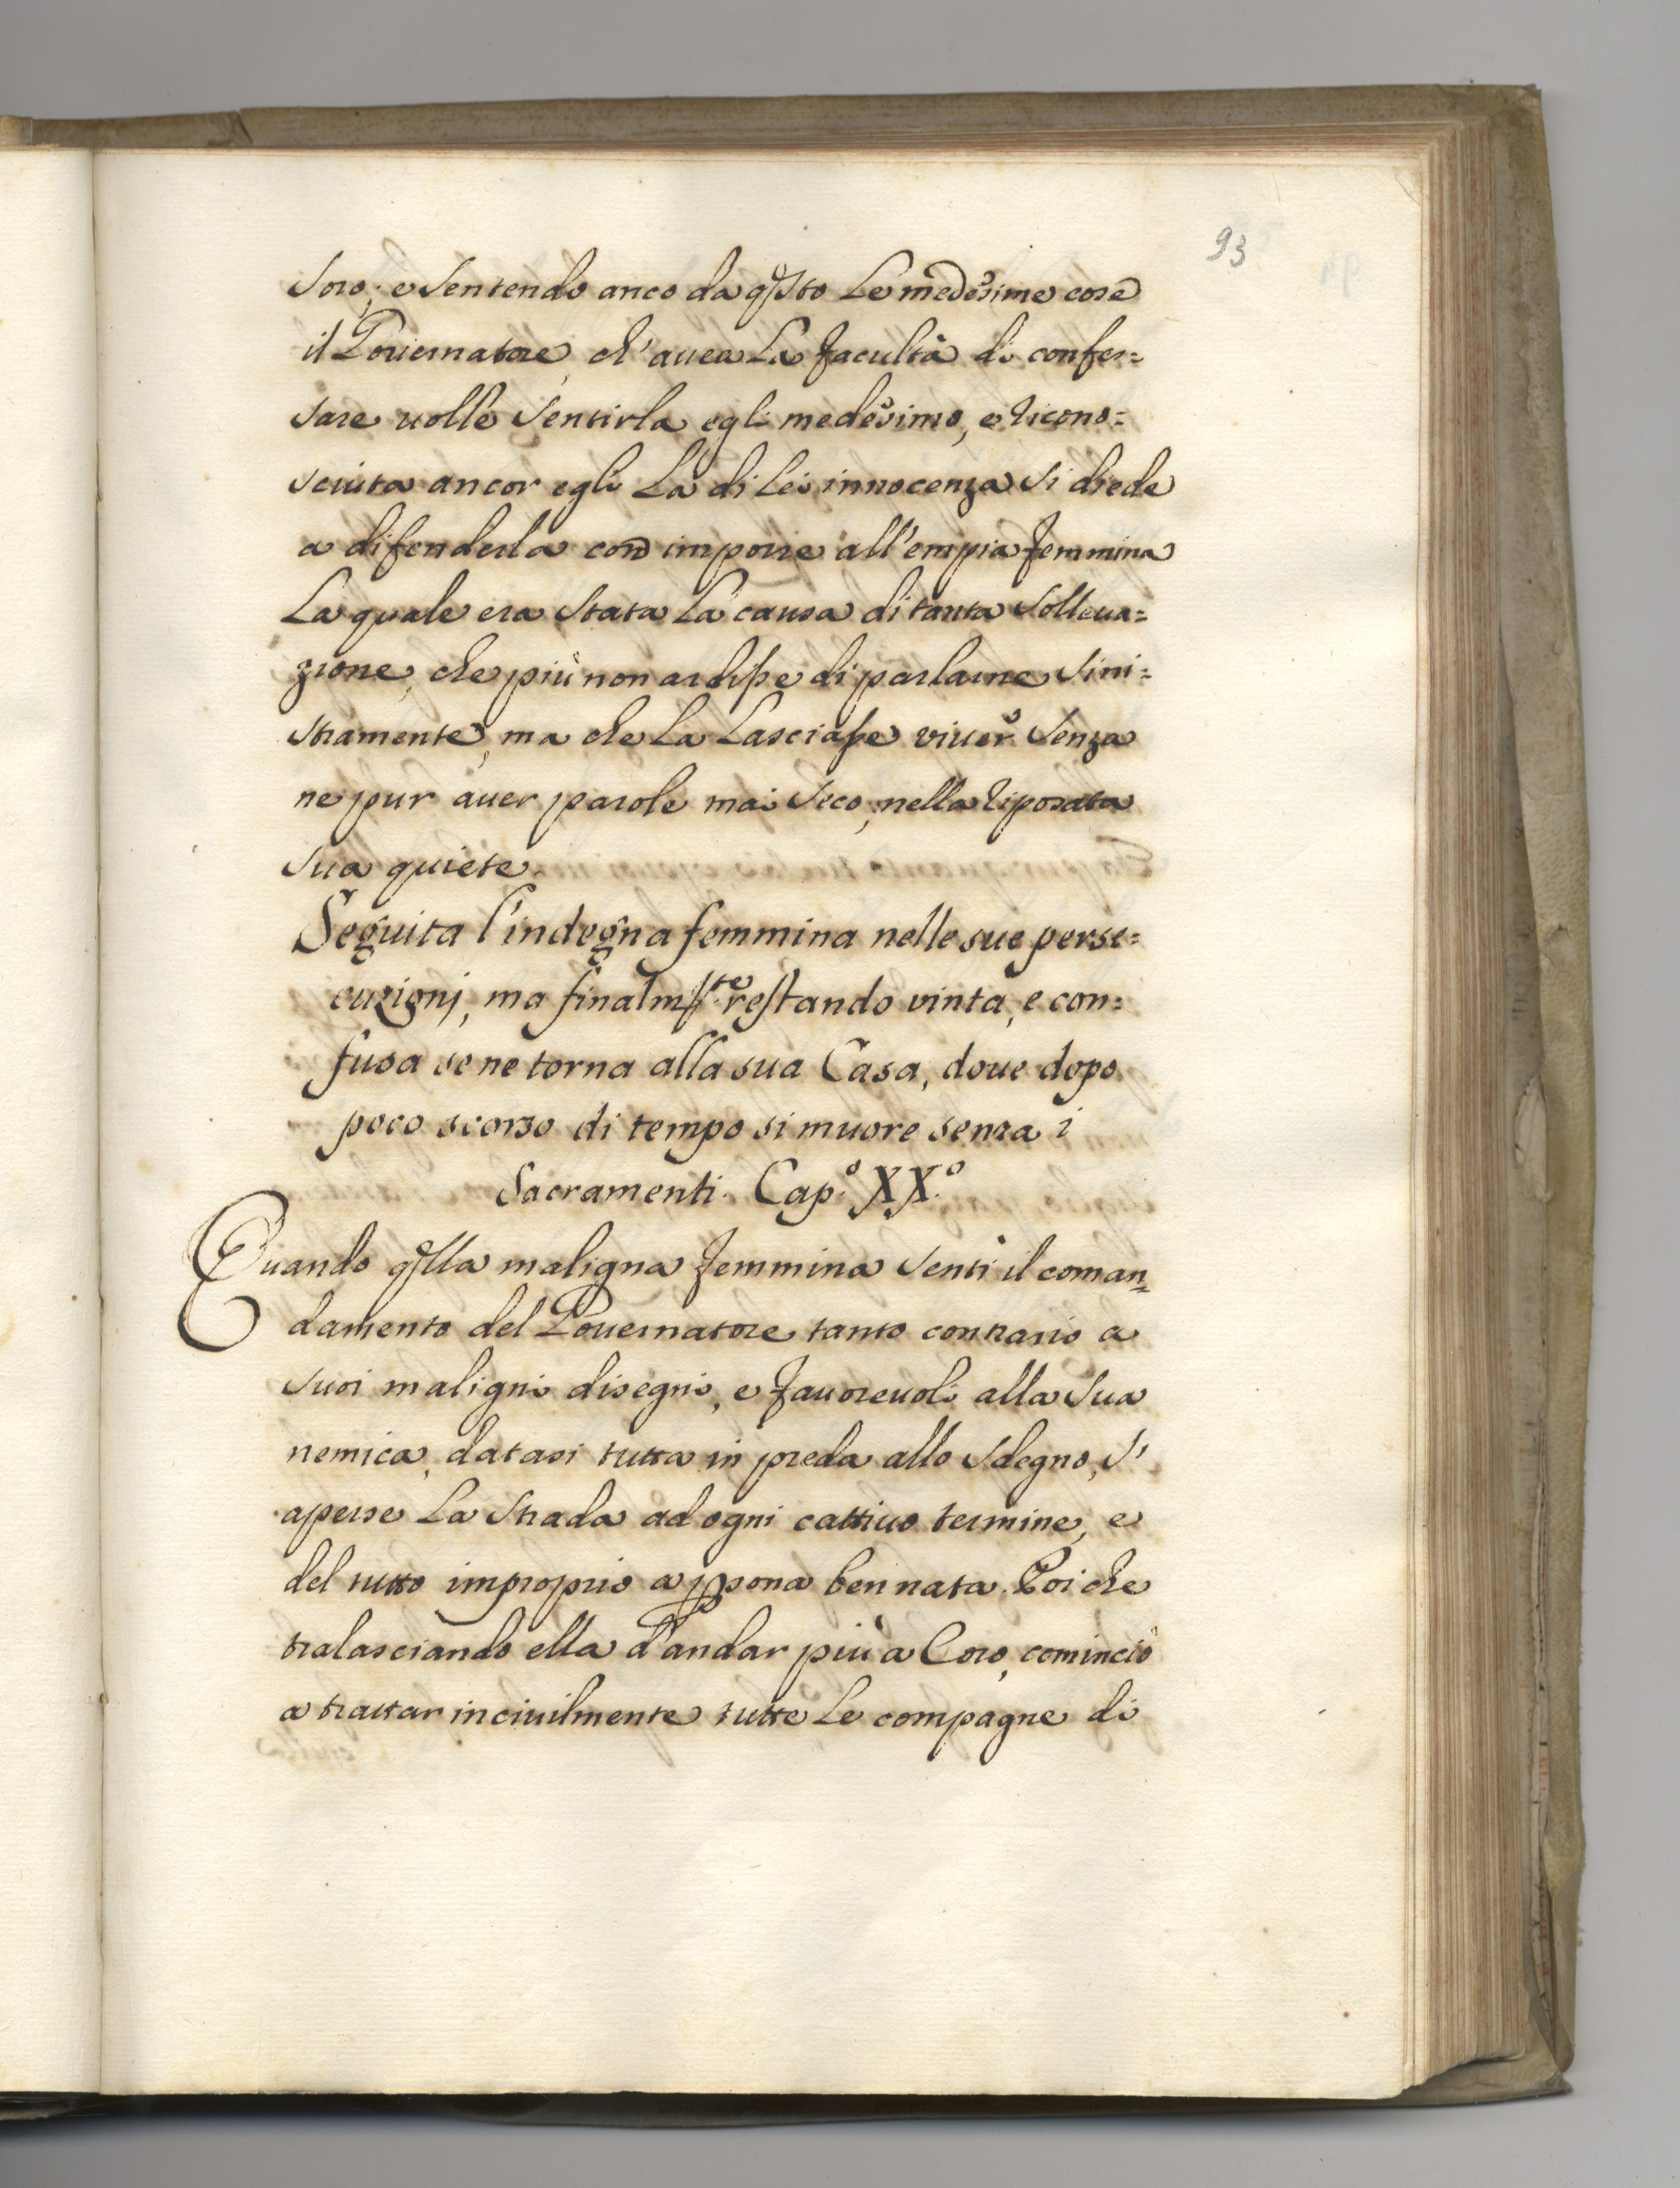 93
soro; e sentendo anco da qsto le medesime cose
il Governatore, ch'auea la facultà di confes=
sare uolle sentirla egli medesimo, e ricono=
sciuta ancor egli la di lei innocenza si diede
a difenderla con imporre all'empia femmina
la quale era stata la causa di tanta solleua=
zione, che più non ardisse di parlarne sini=
stramente, ma che la lasciasse viuer senza
ne pur auer parole mai seco, nella riposata
sua quiete.
Seguita l'indegna femmina nelle sue perse=
cuzionj, ma finalmte restando vinta, e con=
fusa se ne torna alla sua Casa, doue dopo
poco scorso di tempo si muore senza i
Sacramenti. Cap.º XX.º
Quando qlla maligna femmina sentì il coman=
damento del Gouernatore tanto contrario a
suoi maligni disegni, e fauoreuoli alla sua
nemica, datasi tutta in preda allo sdegno, s'
aperse la strada ad ogni cattiuo termine, e
del tutto improprio a psona ben nata. Poi che
tralasciando ella d'andar più a Coro, cominciò
a trattar inciuilmente tutte le compagne di